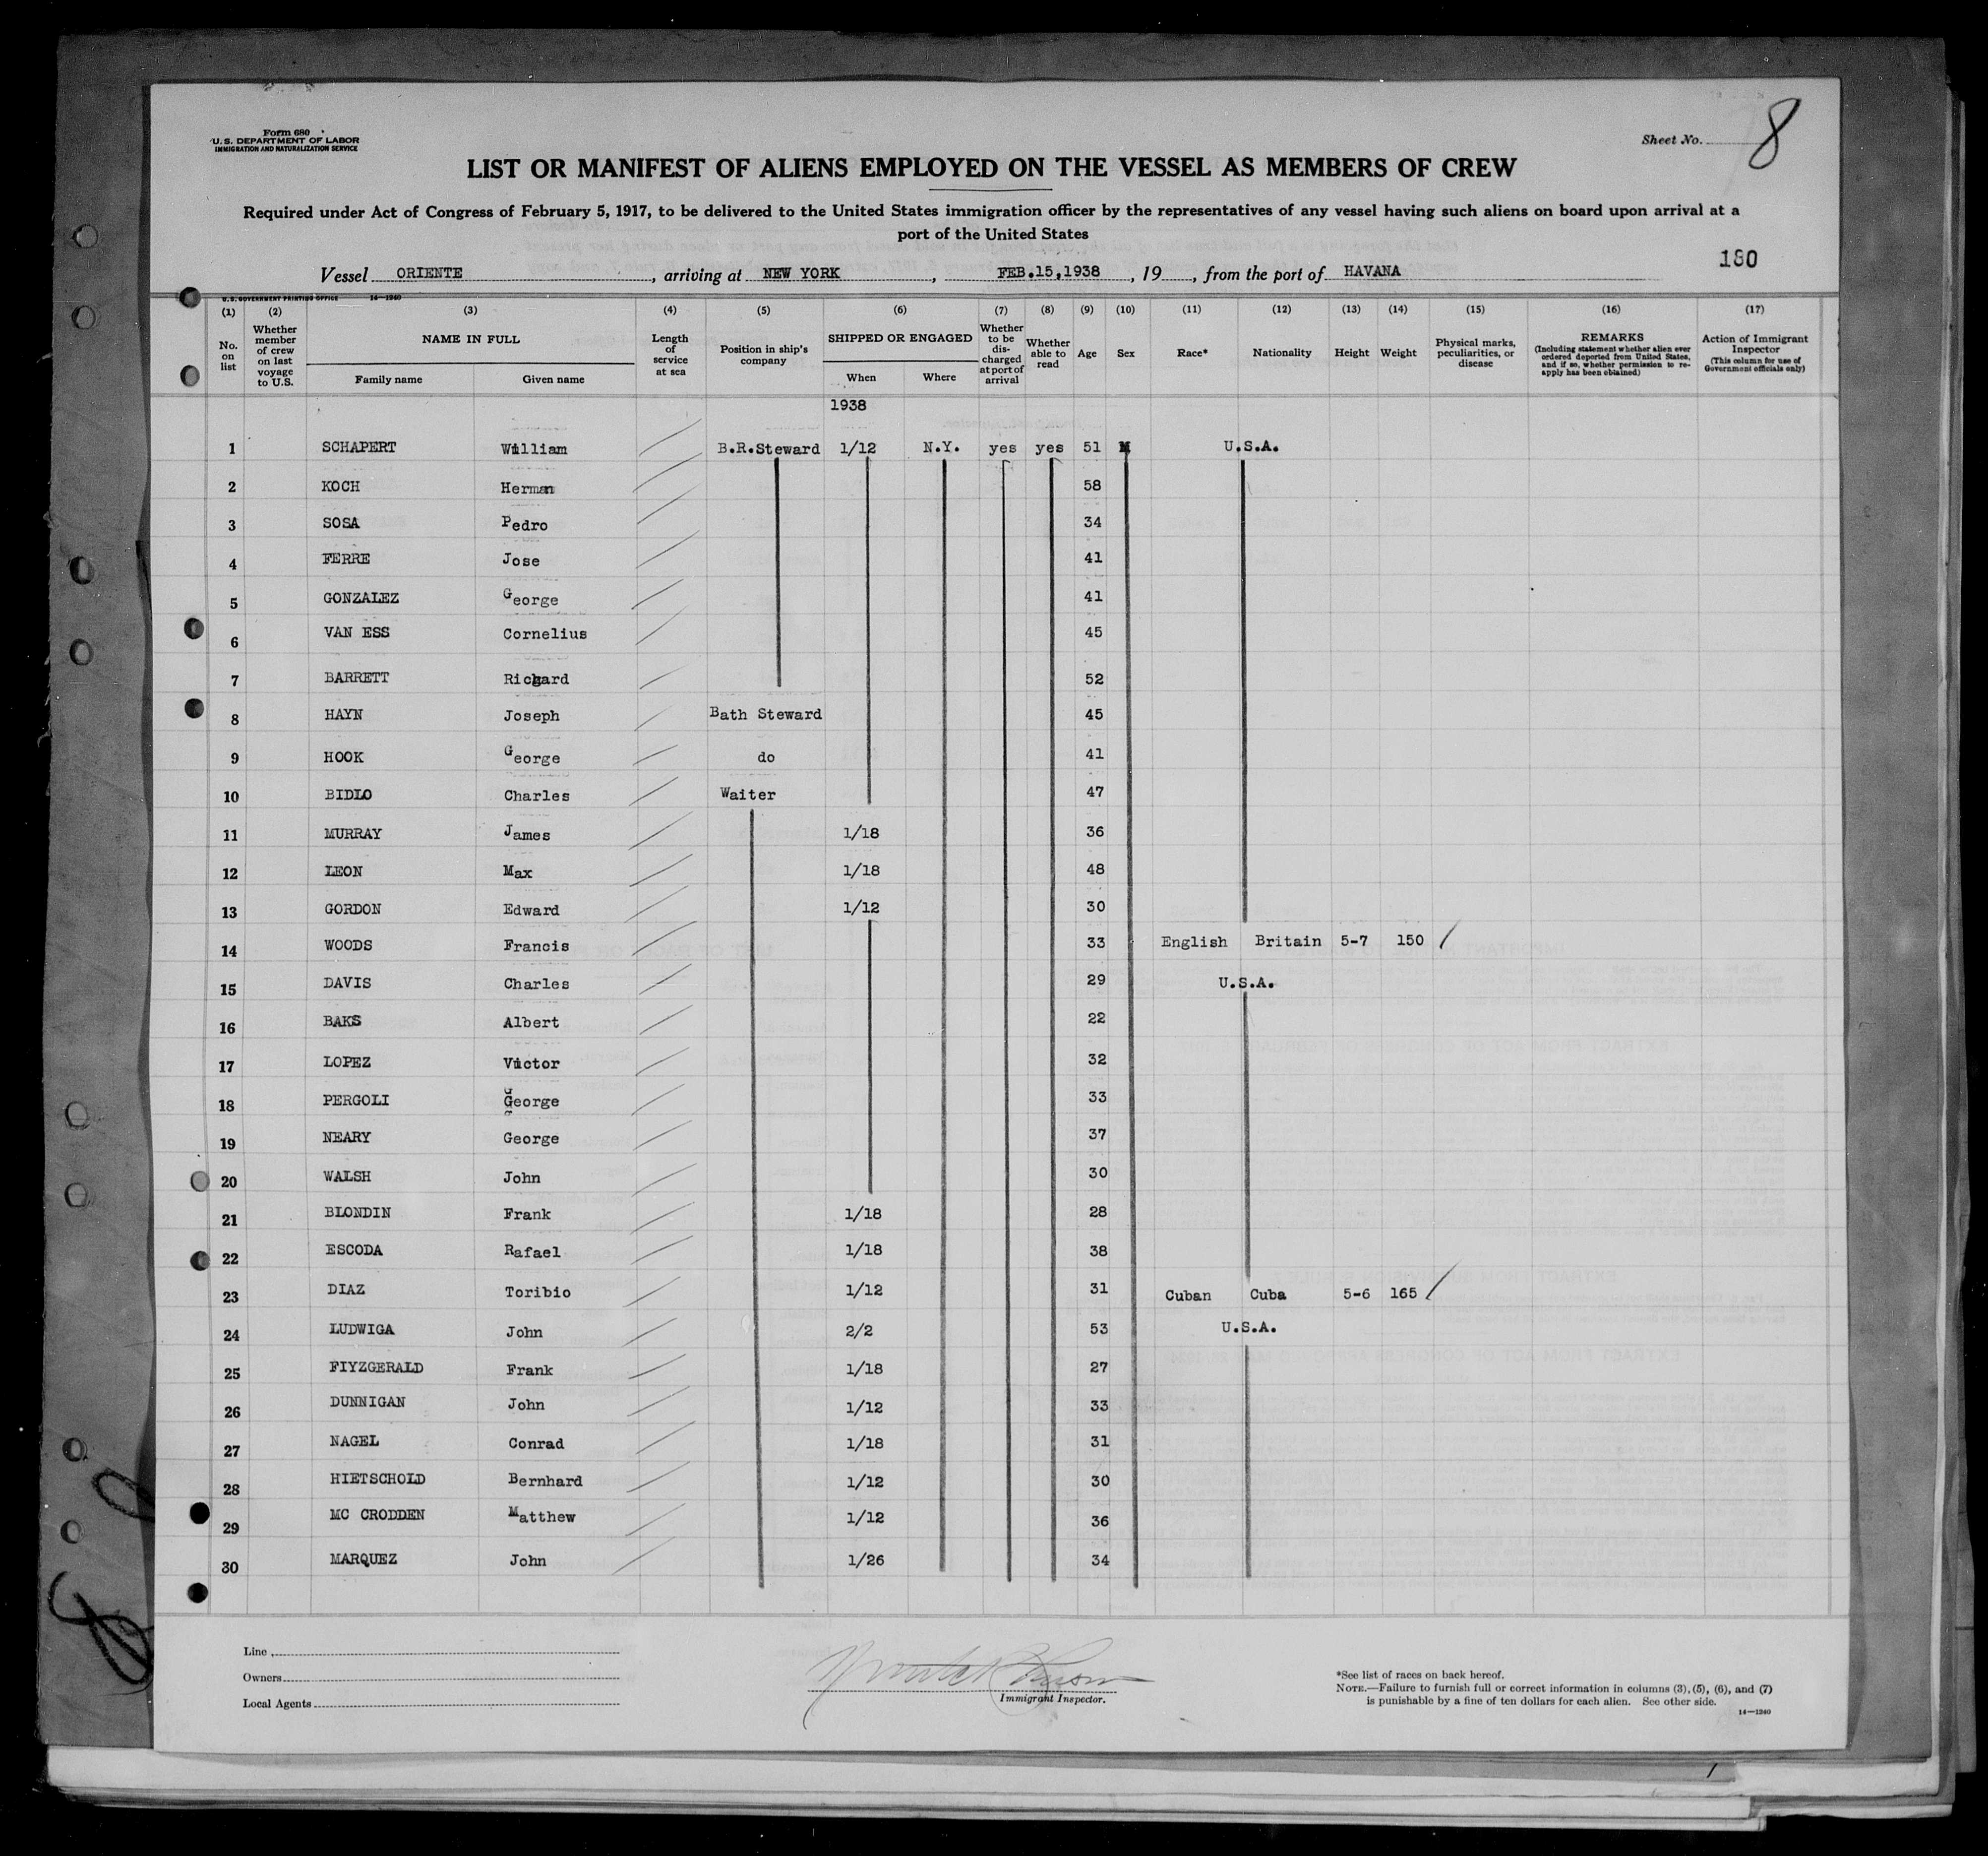 Form 680
U. S. DEPARTMENT OF LABOR
IMMIGRATION AND NATURALIZATION SERVICE
Sheet No. 8
LIST OR MANIFEST OF ALIENS EMPLOYED ON THE VESSEL AS MEMBERS OF CREW
Required under Act of Congress of February 5, 1917, to be delivered to the United States immigration officer by the representatives of any vessel having such aliens on board upon arrival at a
port of the United States
180
Vessel ORIENTE, arriving at NEW YORK, FEB.15,1938, 19, from the port of HAVANA
U.S. GOVERNMENT PRINTING OFFICE 14—1240
(1) No. on list (2) Whether member of crew on last voyage to U.S. (3) NAME IN FULL Family name Given name (4) Length of service at sea (5) Position in ship's company (6) SHIPPED OR ENGAGED When Where (7) Whether to be discharged at port of arrival (8) Whether able to read (9) Age (10) Sex (11) Race* (12) Nationality (13) Height (14) Weight (15) Physical marks, peculiarities, or disease (16) REMARKS (Including statement whether alien ever ordered deported from United States, and if so, whether permission to re-apply has been obtained) (17) Action of Immigrant Inspector (This column for use of Government officials only)
1938
1 SCHAPERT William B.R.Steward 1/12 N.Y. yes yes 51 M U.S.A.
2 KOCH Herman 58
3 SOSA Pedro 34
4 FERRE Jose 41
5 GONZALEZ George 41
6 VAN ESS Cornelius 45
7 BARRETT Richard 52
8 HAYN Joseph Bath Steward 45
9 HOOK George do 41
10 BIDLO Charles Waiter 47
11 MURRAY James 1/18 36
12 LEON Max 1/18 48
13 GORDON Edward 1/12 30
14 WOODS Francis 33 English Britain 5-7 150
15 DAVIS Charles 29 U.S.A.
16 BAKS Albert 22
17 LOPEZ Victor 32
18 PERGOLI George 33
19 NEARY George 37
20 WALSH John 30
21 BLONDIN Frank 1/18 28
22 ESCODA Rafael 1/18 38
23 DIAZ Toribio 1/12 31 Cuban Cuba 5-6 165
24 LUDWIGA John 2/2 53 U.S.A.
25 FIYZGERALD Frank 1/18 27
26 DUNNIGAN John 1/12 33
27 NAGEL Conrad 1/18 31
28 HIETSCHOLD Bernhard 1/12 30
29 MC CRODDEN Matthew 1/12 36
30 MARQUEZ John 1/26 34
Line
Owners
Local Agents
Immigrant Inspector.
*See list of races on back hereof.
NOTE.—Failure to furnish full or correct information in columns (3), (5), (6), and (7)
is punishable by a fine of ten dollars for each alien. See other side.
14—1240